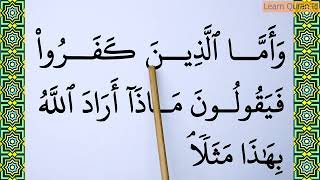 Learn Quran
وَأَمَّا ٱلَّذِينَ كَفَرُوا۟
فَيَقُولُونَ مَاذَآ أَرَادَ ٱللَّهُ
بِهَٰذَا مَثَلًاۘ